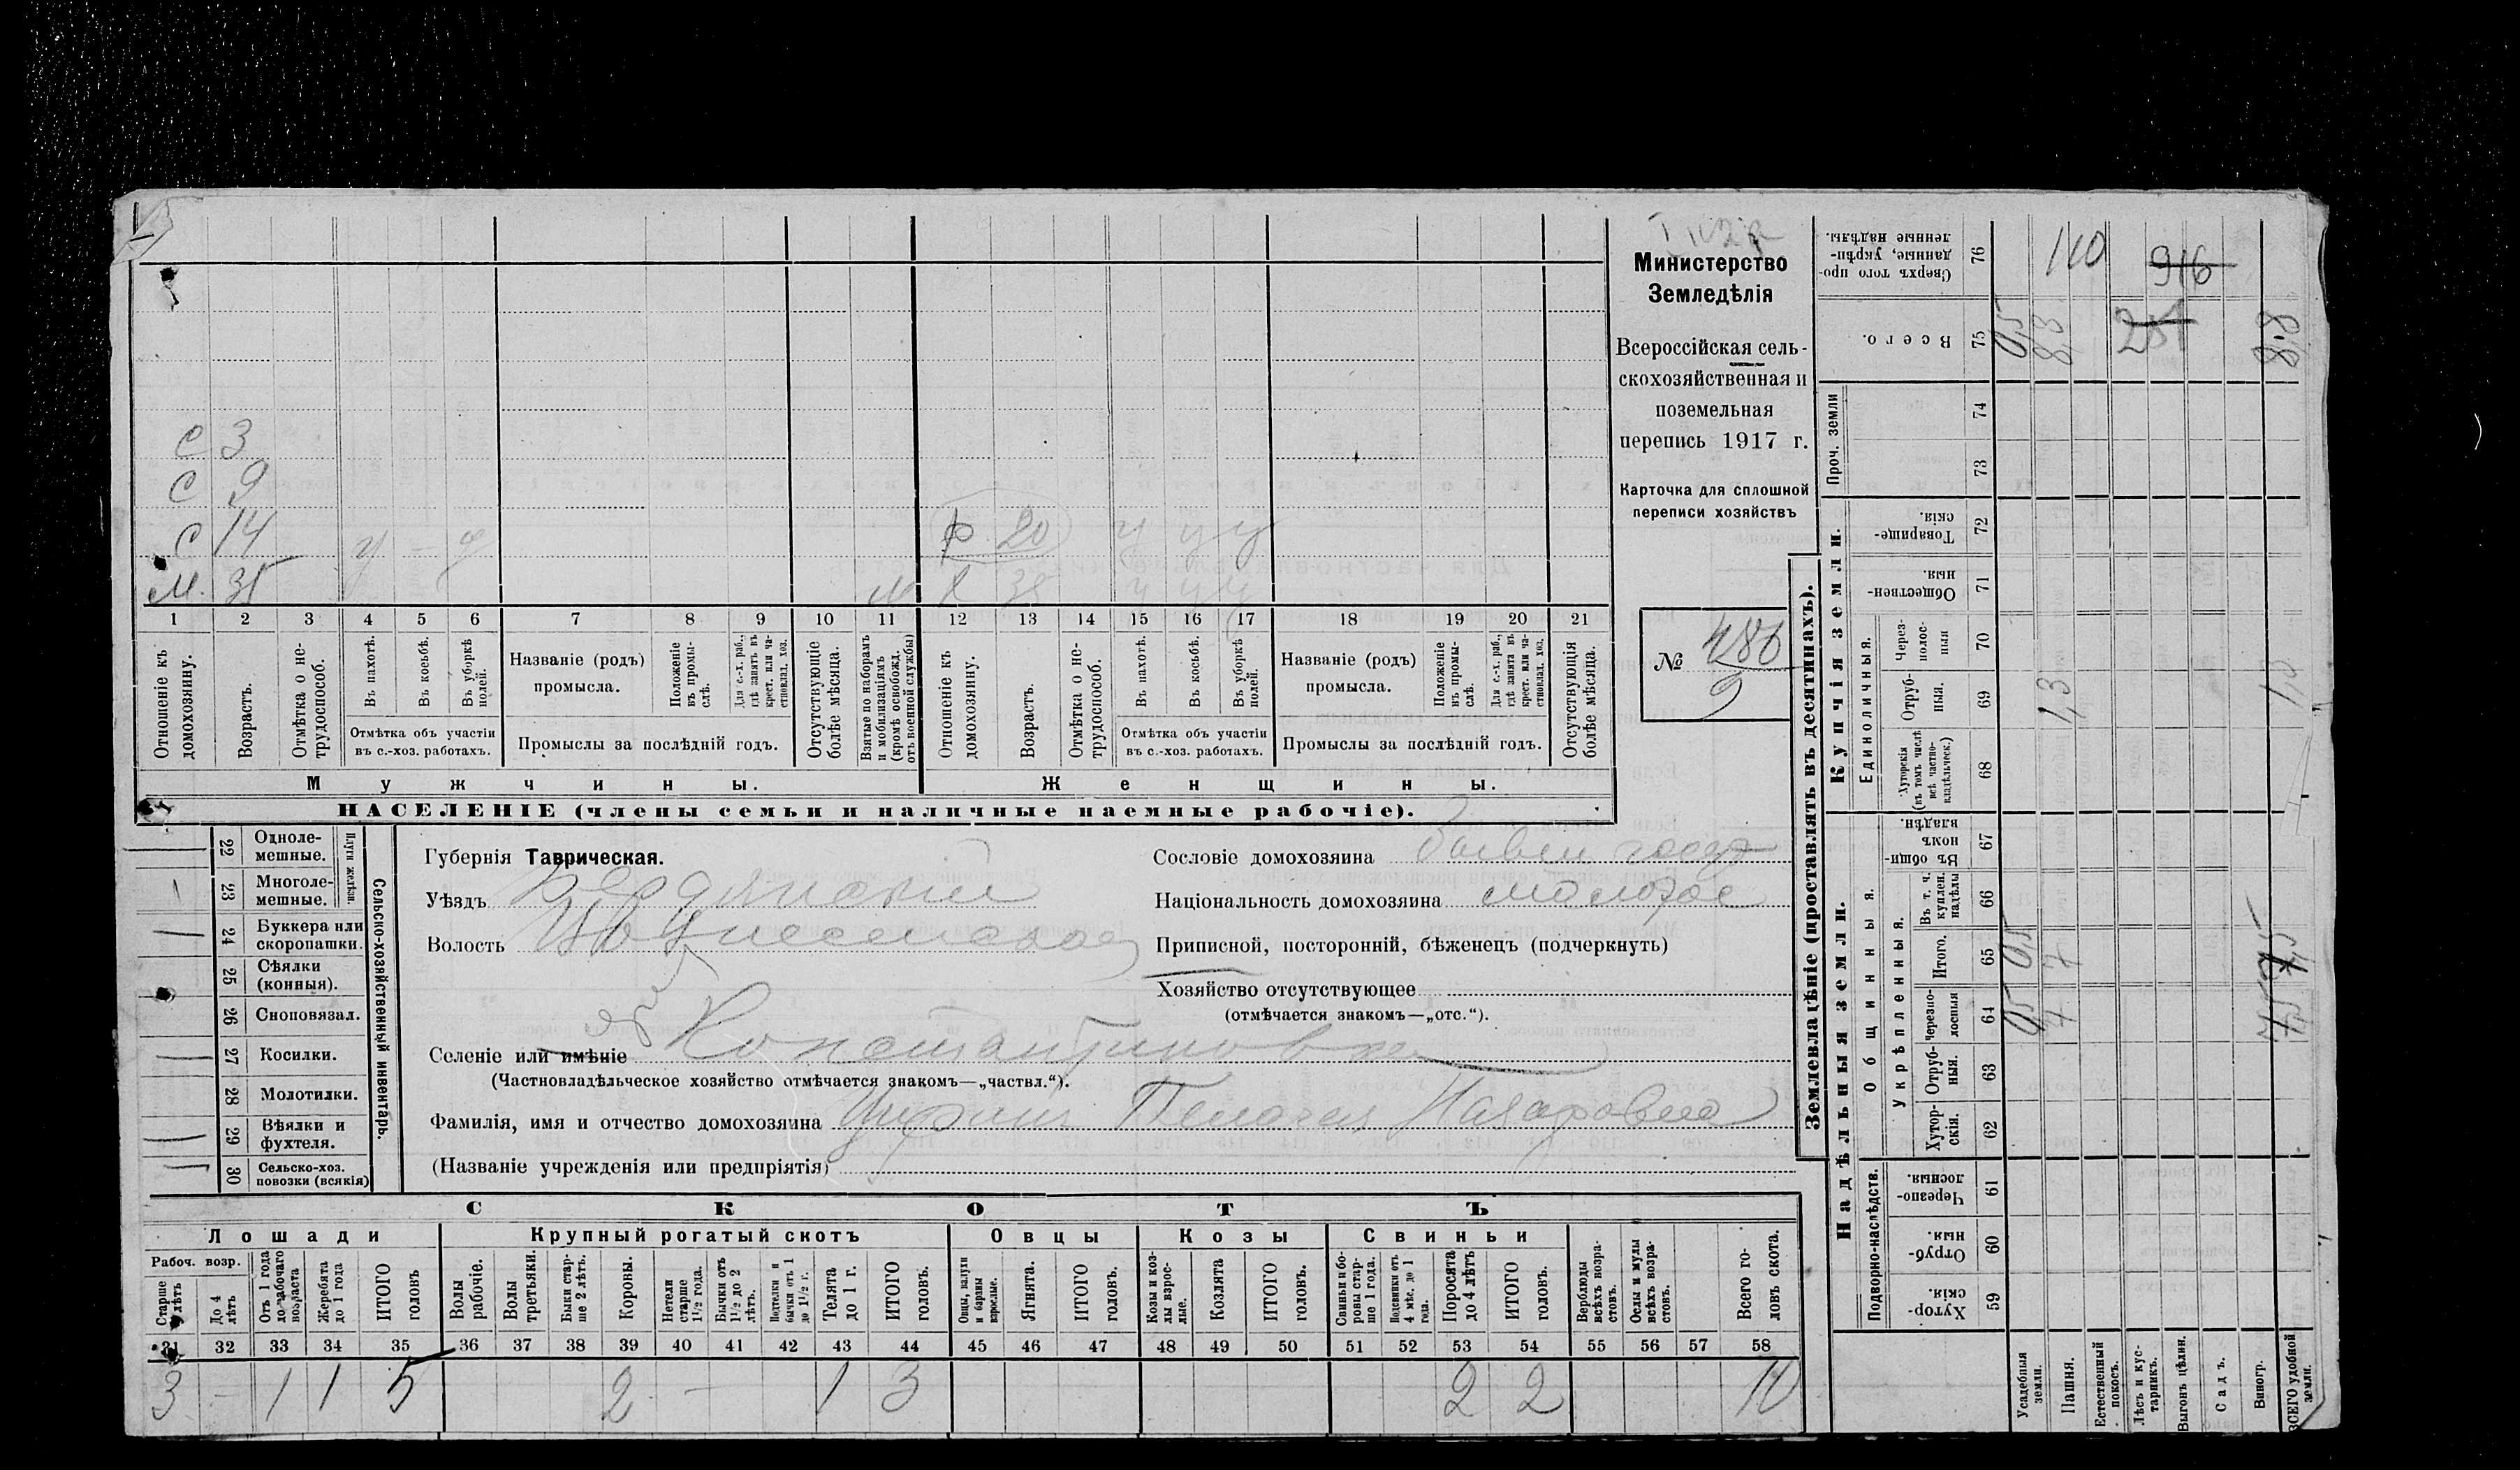 Министерство
Земледѣлія
Всероссійская сель-
скохозяйственная и
поземельная
перепись 1917 г.
Карточка для сплошной
переписи хозяйствъ
№ 486
9
С 3
С 9
С 14 у — у Р 20 у у у
М. 35 у у у
1 2 3 4 5 6 7 8 9 10 11 12 13 14 15 16 17 18 19 20 21
Отношеніе къ домохозяину.
Возрастъ.
Отмѣтка о не-трудоспособ.
Въ пахотѣ.
Въ косьбѣ.
Въ уборкѣ полей.
Отмѣтка объ участіи
въ с.-хоз. работахъ.
Названіе (родъ)
промысла.
Положеніе въ промы-слѣ.
Для с.-х. раб., гдѣ занятъ въ крест. или ча-стновлад. хоз.
Промыслы за послѣдній годъ.
Отсутствующіе болѣе мѣсяца.
Взятые по наборамъ и мобилизаціямъ (кромѣ освобожд. отъ военной службы)
Отношеніе къ домохозяину.
Возрастъ.
Отмѣтка о не-трудоспособ.
Въ пахотѣ.
Въ косьбѣ.
Въ уборкѣ полей.
Отмѣтка объ участіи
въ с.-хоз. работахъ.
Названіе (родъ)
промысла.
Положеніе въ промы-слѣ.
Для с.-х. раб., гдѣ занятъ въ крест. или ча-стновлад. хоз.
Промыслы за послѣдній годъ.
Отсутствующія болѣе мѣсяца.
Мужчины.
Женщины.
НАСЕЛЕНІЕ (члены семьи и наличные наемные рабочіе).
22 Одноле-мешные.
23 Многоле-мешные.
Плуги желѣзн.
24 Буккера или скоропашки.
25 Сѣялки (конныя).
26 Сноповязал.
27 Косилки.
28 Молотилки.
29 Вѣялки и фухтеля.
30 Сельско-хоз. повозки (всякія)
Сельско-хозяйственный инвентарь.
Губернія Таврическая.
Уѣздъ Бердянскій
Волость Вознесенская
Селеніе или имѣніе Константиновка
(Частновладѣльческое хозяйство отмѣчается знакомъ—„частвл.“).
Фамилія, имя и отчество домохозяина Пелагея Назаровна
(Названіе учрежденія или предпріятія)
Сословіе домохозяина
Національность домохозяина малорос
Приписной, посторонній, бѣженецъ (подчеркнуть)
Хозяйство отсутствующее
(отмѣчается знакомъ—„отс.“).
СКОТЪ
Лошади
Крупный рогатый скотъ
Овцы
Козы
Свиньи
Рабоч. возр.
Старше 4 лѣтъ
До 4 лѣтъ
Отъ 1 года до рабочаго возраста
Жеребята до 1 года
ИТОГО головъ
Волы рабочіе.
Волы третьяки.
Быки стар-ше 2 лѣтъ.
Коровы.
Нетели старше 1½ года.
Бычки отъ 1½ до 2 лѣтъ.
Подтелки и бычки отъ 1 до 1½ г.
Телята до 1 г.
ИТОГО головъ.
Овцы, валухи и бараны взрослые.
Ягнята.
ИТОГО головъ.
Козы и коз-лы взрос-лые.
Козлята
ИТОГО головъ.
Свиньи и бо-ровы стар-ше 1 года.
Подсвинки отъ 4 мѣс. до 1 года.
Поросята до 4 лѣтъ
ИТОГО головъ.
Верблюды всѣхъ возра-стовъ.
Ослы и мулы всѣхъ возра-стовъ.
Всего го-ловъ скота.
31 32 33 34 35 36 37 38 39 40 41 42 43 44 45 46 47 48 49 50 51 52 53 54 55 56 57 58
3 — 1 1 5 2 — 1 3 2 2 10
Землевладѣніе (проставлять въ десятинахъ).
Сверхъ того про-данные, укрѣп-ленные надѣлы. 76 110 916
Всего. 75 0,5 8,3 8,8
Проч. земли
74
73
Купчія земли.
Товарище-скія. 72
Обществен-ныя. 71
Единоличныя.
Через-полос-ныя 70
Отруб-ныя. 69 1,3 1,3
Хуторскія (въ томъ числѣ всѣ частно-владѣльческ.) 68
Надѣльныя земли.
Общинныя.
Въ общи-номъ владѣн. 67
Укрѣпленныя.
Въ т. ч. куплен. надѣлы 66
Итого. 65 0,5 7 7,5
Черезпо-лосныя 64 0,5 7 7,5
Отруб-ныя. 63
Хутор-скія. 62
Подворно-наслѣдств.
Черезпо-лосныя. 61
Отруб-ныя. 60
Хутор-скія. 59
Усадебныя земли.
Пашня.
Естественный покосъ.
Лѣсъ и кус-тарникъ.
Выгонъ цѣлин.
Садъ.
Виногр.
ВСЕГО удобной земли.